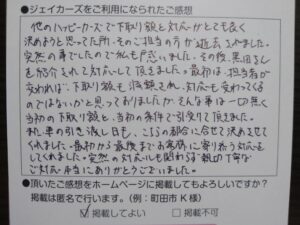 ●ジェイカーズをご利用になられたご感想
他のハッピーカーズで下取り額と対応がとても良く
決めようと思ってた所、そのご担当の方が過去
突然の事でしたので私も戸惑いました。その後、黒田さん
を紹介されて対応して頂きました。最初は、担当者が
変われば、下取り額も減額され、対応も変わってくる
のではないかと思っておりましたが、そんな事は一切無く
当初の下取り額と、当初の条件で引受て頂きました。
また車の引き渡し日も、こちらの都合に合せて決めさせて
くれました。最初から最後までお客様に寄り添う対応を
してくれました。突然の対応にも関わらず親切丁寧な
ご対応本当にありがとうございました。
●頂いたご感想をホームページに掲載してもよろしいですか?
掲載は匿名で行います。(例:町田市K様)
☑掲載してよい □掲載不可